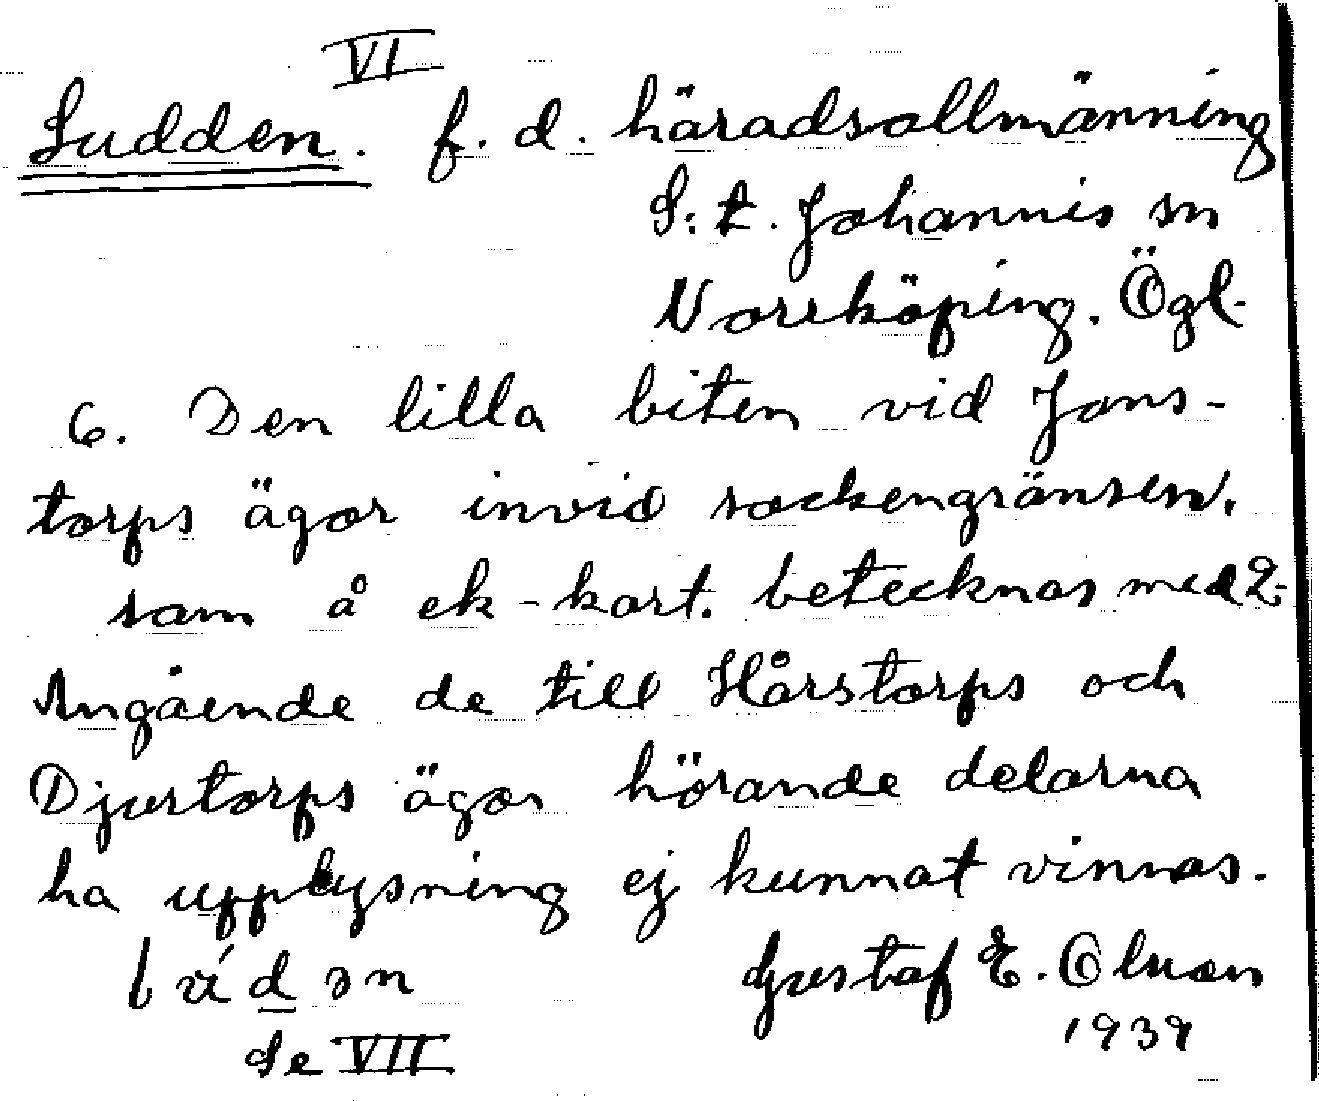 VI
Sudden. f. d. häradsallmänning
S:t. Johannis sn
Norrköping. Ögl.
6. Den lilla biten vid Jons-
torps ägor invid sockengränsen.
som å ek-kart. betecknas med 2.
Angående de till Hårstorps och
Djurtorps ägor hörande delarna
ha upplysning ej kunnat vinnas.
Gustaf E. Olsson
1939
Se VII